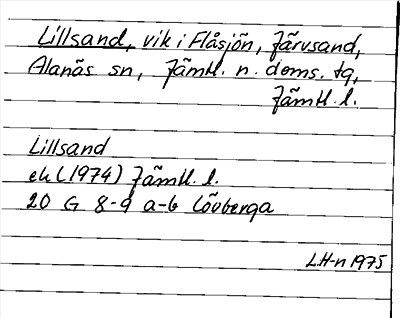 Lillsand, vik i Flåsjön, Järvsand,
Alanäs sn, Jämtl. n. doms. tg,
Jämtl. l.
Lillsand
ek (1974) Jämtl. l.
20 G 8-9 a-b Lövberga
LH-n 1975